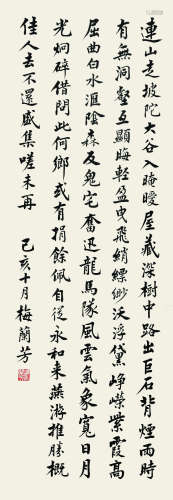 連山走坡陀大谷入晻曖屋藏深樹中路出巨石背煙雨時
有無洞壑互顯晦輕盈曳飛綃縹緲沃浮黛崢嶸紫霞高
屈曲白水匯陰森及鬼宅奮迅龍馬隊風雲氣象寬日月
光炯碎借問此何鄉或有捐餘佩自從永和來燕游推勝概
佳人去不還盛集嗟未再
己亥十月梅蘭芳